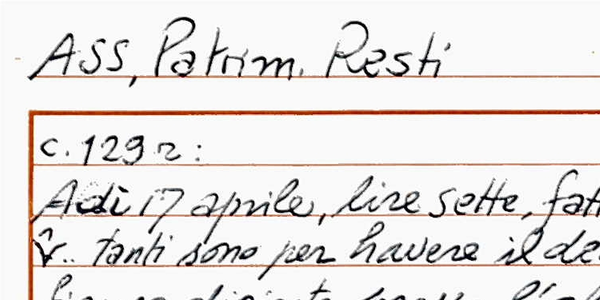 ASS, Patrim. Resti
c. 129 r:
Adì 17 aprile, lire sette, fatt
tanti sono per havere il de